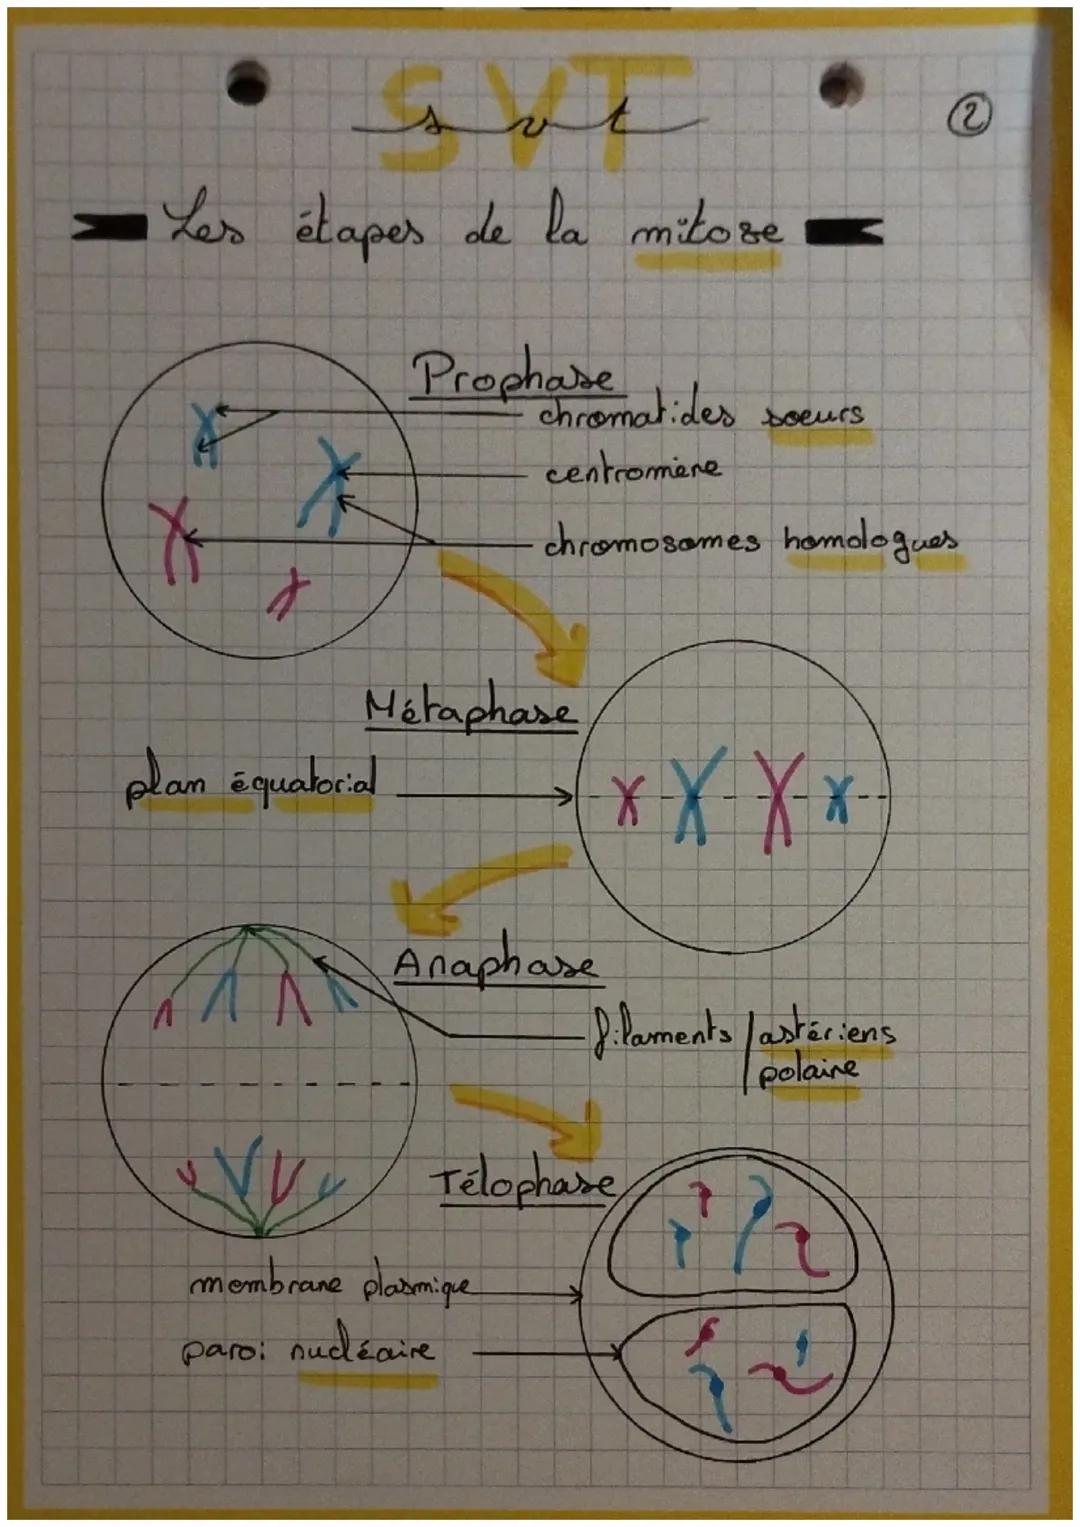 SVT
svt
2
Les étapes de la mitose
Prophase
chromatides soeurs
centromère
chromosomes homologues
Métaphase
plan équatorial
Anaphase
filaments / astériens
polaire
Télophase
membrane plasmique
paroi nucléaire